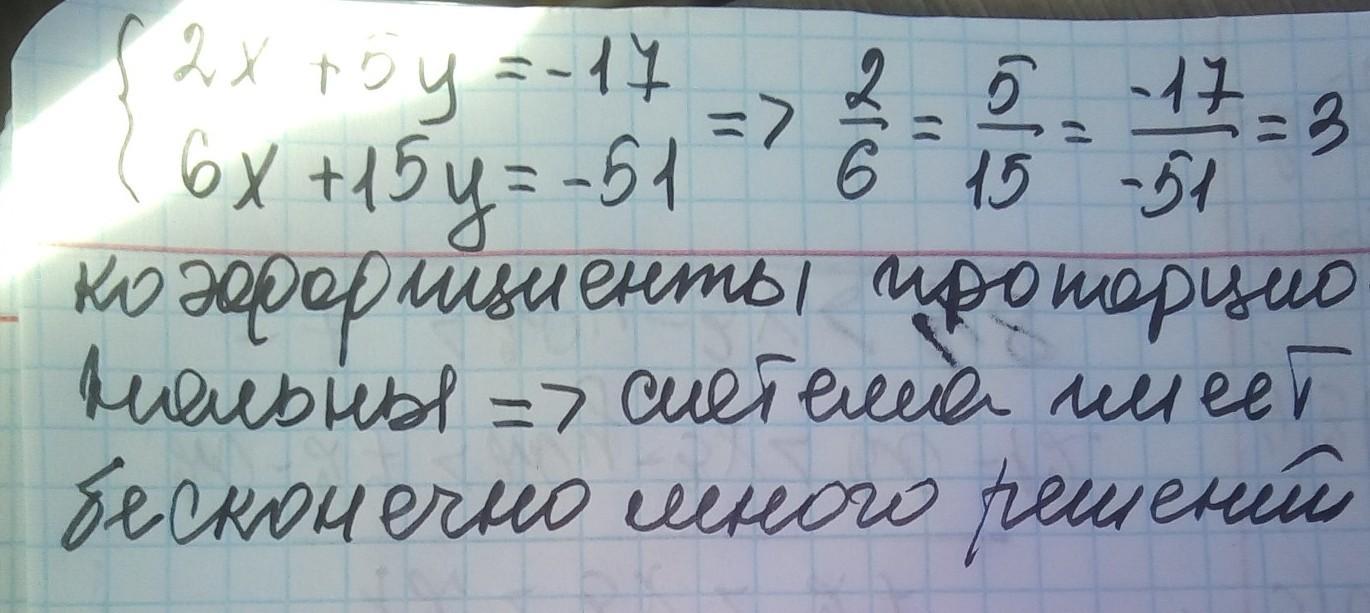 2x + 5y = -17
6x + 15y = -51 => 2/6 = 5/15 = -17/-51 = 3
коэффициенты пропорцио
нальны => система имеет
бесконечно много решений